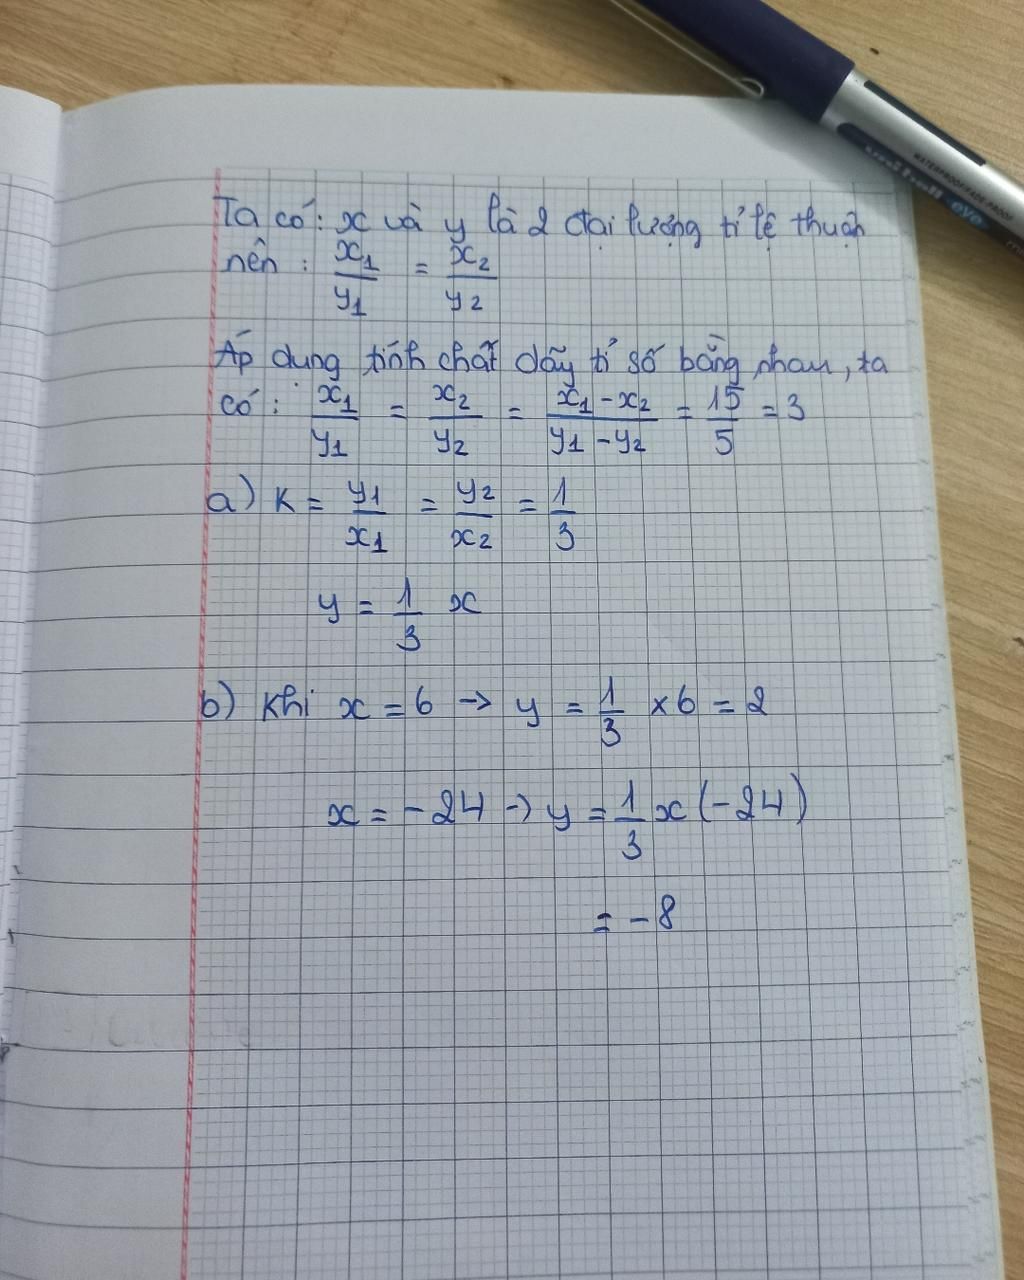 WATERPROOF/FADE-PROOF
uni-ball eye
Ta có: x và y là 2 đại lượng tỉ lệ thuận
nên : x₁/y₁ = x₂/y₂
Áp dụng tính chất dãy tỉ số bằng nhau, ta
có : x₁/y₁ = x₂/y₂ = (x₁ - x₂)/(y₁ - y₂) = 15/5 = 3
a) K = y₁/x₁ = y₂/x₂ = 1/3
y = 1/3 x
b) Khi x = 6 → y = 1/3 × 6 = 2
x = -24 → y = 1/3 x (-24)
= -8